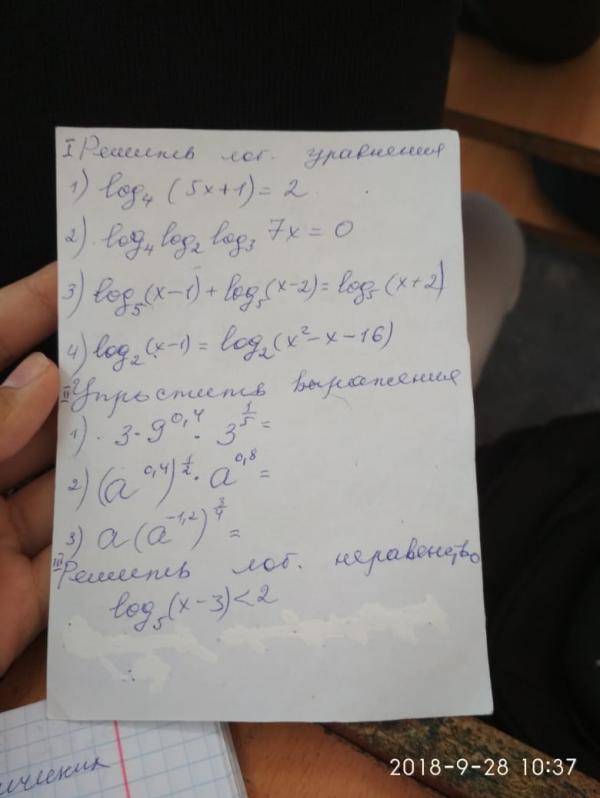 I Решить лог. уравнения
1) log₄ (5x+1) = 2
2) log₄ log₂ log₃ 7x = 0
3) log₅(x-1) + log₅(x-2) = log₅(x+2)
4) log₂(x-1) = log₂(x²-x-16)
II Упростить выражения
1) 3·9^0,4 · 3^(1/5) =
2) (a^0,4)^(1/2) · a^0,8 =
3) a(a^-1,2)^(3/4) =
III Решить лог. неравенство
log₅(x-3)<2
2018-9-28 10:37